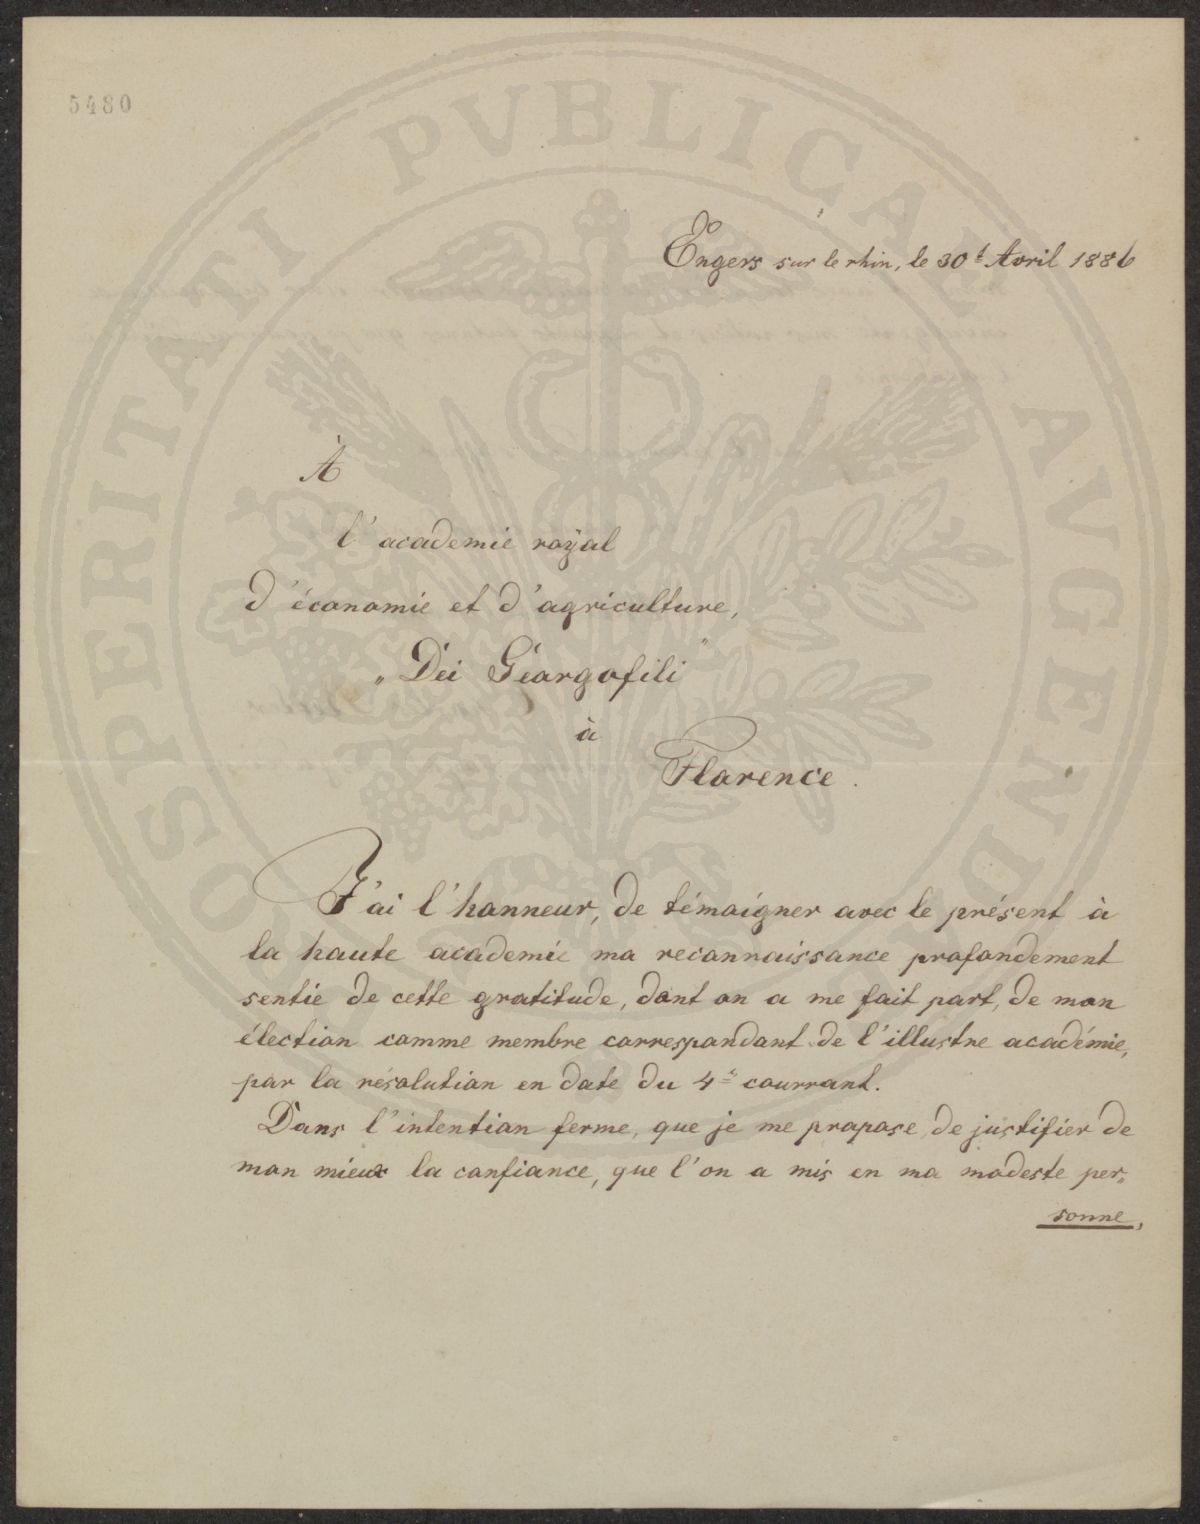 5480
PROSPERITATI PVBLICAE AVGENDAE
Engers sur le rhin, le 30t Avril 1886
À
l'academie royal
d'économie et d'agriculture,
„Dei Géorgofili"
à
Florence.
J'ai l'honneur, de témoigner avec le présent à
la haute academie ma reconnaissance profondement
sentie de cette gratitude, dont on a me fait part, de mon
élection comme membre correspondant de l'illustre académie,
par la résolution en date du 4t courrant.
Dans l'intention ferme, que je me propose de justifier de
mon mieux la confiance, que l'on a mis en ma modeste per„
sonne,